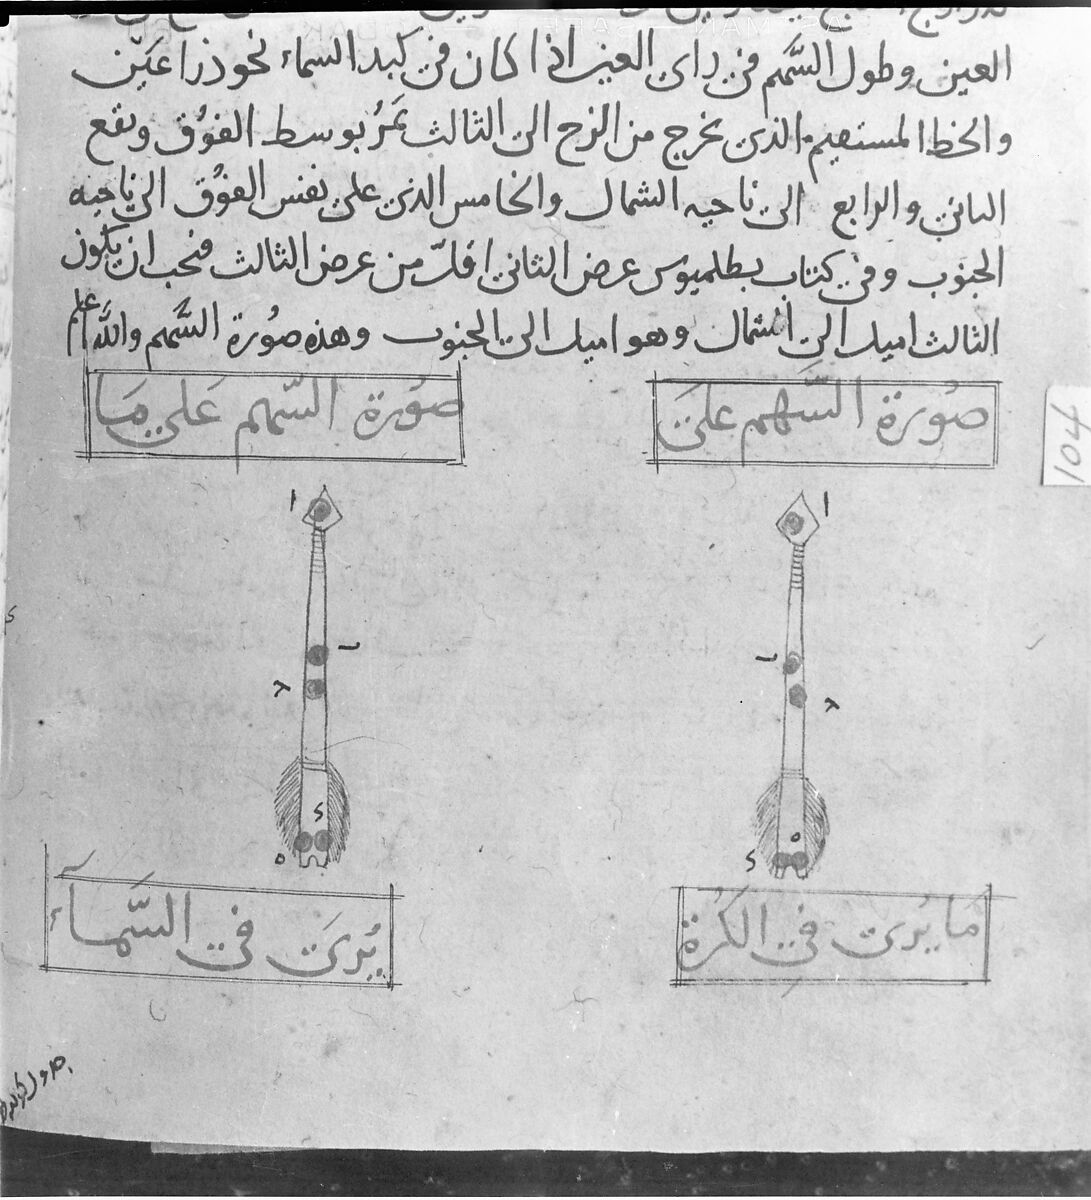 العين وطول السَّهم في راي العين اذا كان في كبد السماء نحو ذراعَين
والخط المستقيم الذي يخرج من الزج الى الثالث يَمُرُّ بوسط الفُوُق ويقع
الثاني والرابع الى ناحيه الشمال والخامس الذي على نفس الفوُق الى ناحيه
الجنوب وفي كتاب بطلميوس عرض الثاني اقلّ من عرض الثالث فيجب ان يكون
الثالث اميل الى الشمال وهو اميل الى الجنوب وهذه صُورة السَّهم والله اعلم
صُورَة السَّهم علىَ
صُورة السَّهم عَلى مَا
ا
ا
ب
ب
ج
ج
د
ه
د
ه
مَا يُرى في الكُرة
يُرىَ في السَّمآء
104